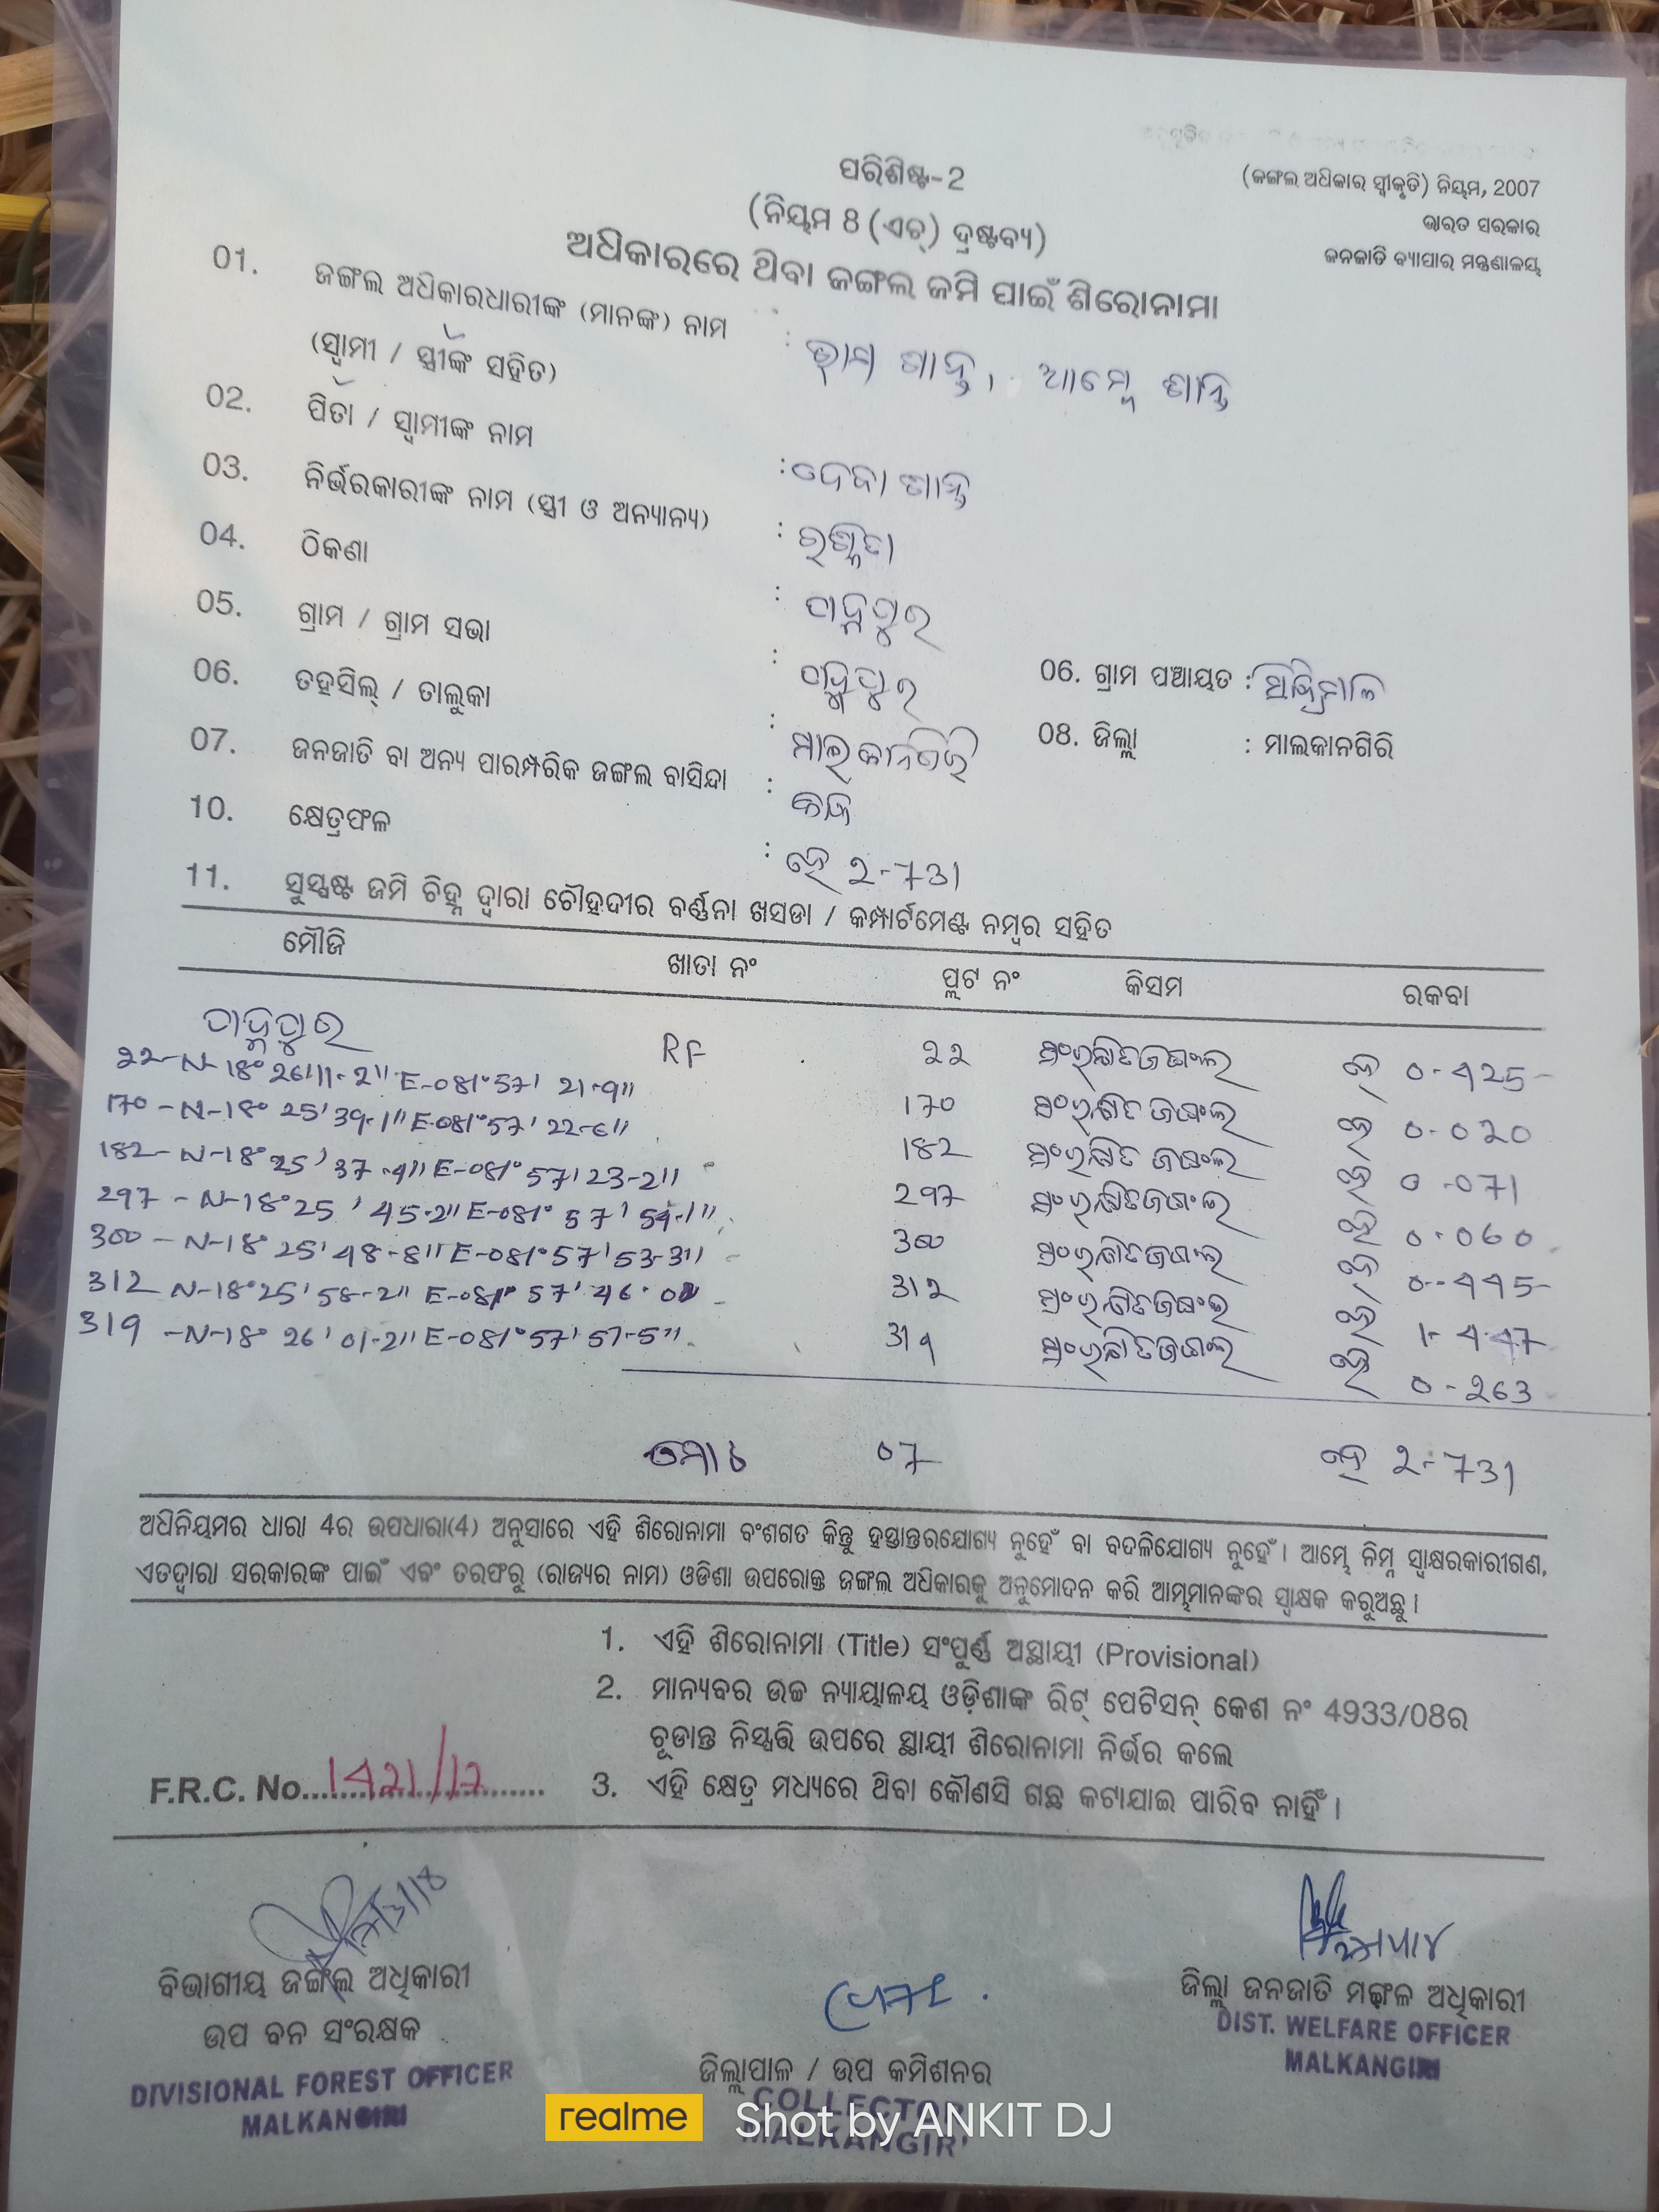 ପରିଶିଷ୍ଟ-2
(ଜଙ୍ଗଲ ଅଧିକାର ସ୍ୱୀକୃତି) ନିୟମ, 2007
(ନିୟମ 8 (ଏଚ୍) ଦ୍ରଷ୍ଟବ୍ୟ)
ଭାରତ ସରକାର
ଅଧିକାରରେ ଥିବା ଜଙ୍ଗଲ ଜମି ପାଇଁ ଶିରୋନାମା
ଜନଜାତି ବ୍ୟାପାର ମନ୍ତ୍ରଣାଳୟ
01. ଜଙ୍ଗଲ ଅଧିକାରଧାରୀଙ୍କ (ମାନଙ୍କ) ନାମ :
(ସ୍ୱାମୀ / ସ୍ତ୍ରୀଙ୍କ ସହିତ)
02. ପିତା / ସ୍ୱାମୀଙ୍କ ନାମ :
03. ନିର୍ଭରକାରୀଙ୍କ ନାମ (ସ୍ତ୍ରୀ ଓ ଅନ୍ୟାନ୍ୟ) :
04. ଠିକଣା :
05. ଗ୍ରାମ / ଗ୍ରାମ ସଭା : 06. ଗ୍ରାମ ପଞ୍ଚାୟତ :
06. ତହସିଲ୍ / ତାଲୁକା : ମାଲକାନଗିରି 08. ଜିଲ୍ଲା : ମାଲକାନଗିରି
07. ଜନଜାତି ବା ଅନ୍ୟ ପାରମ୍ପରିକ ଜଙ୍ଗଲ ବାସିନ୍ଦା :
10. କ୍ଷେତ୍ରଫଳ : ହେ 2-731
11. ସୁସ୍ପଷ୍ଟ ଜମି ଚିହ୍ନ ଦ୍ୱାରା ଚୌହଦୀର ବର୍ଣ୍ଣନା ଖସଡା / କମ୍ପାର୍ଟମେଣ୍ଟ ନମ୍ବର ସହିତ
ମୌଜି ଖାତା ନଂ ପ୍ଲଟ ନଂ କିସମ ରକବା
RF
22-N-18°26'11-2" E-081°57' 21-9" 22 ସଂରକ୍ଷିତ ଜଙ୍ଗଲ ହେ 0-425
170-N-18° 25' 39-1" E-081°57' 22-6" 170 ସଂରକ୍ଷିତ ଜଙ୍ଗଲ ହେ 0-020
182-N-18°25' 37-4" E-081°57' 23-2" 182 ସଂରକ୍ଷିତ ଜଙ୍ଗଲ ହେ 0-071
297-N-18°25' 45-2" E-081°57' 54-1" 297 ସଂରକ୍ଷିତ ଜଙ୍ଗଲ ହେ 0-060
300-N-18°25' 48-8" E-081°57' 53-3" 300 ସଂରକ୍ଷିତ ଜଙ୍ଗଲ ହେ 0-445
312 N-18°25' 58-2" E-081° 57' 46-0" 312 ସଂରକ୍ଷିତ ଜଙ୍ଗଲ ହେ 1-447
319-N-18° 26' 01-2" E-081°57' 57-5" 319 ସଂରକ୍ଷିତ ଜଙ୍ଗଲ ହେ 0-263
ମୋଟ 07 ହେ 2-731
ଅଧିନିୟମର ଧାରା 4ର ଉପଧାରା(4) ଅନୁସାରେ ଏହି ଶିରୋନାମା ବଂଶଗତ କିନ୍ତୁ ହସ୍ତାନ୍ତରଯୋଗ୍ୟ ନୁହେଁ ବା ବଦଳିଯୋଗ୍ୟ ନୁହେଁ। ଆମ୍ଭେ ନିମ୍ନ ସ୍ୱାକ୍ଷରକାରୀଗଣ,
ଏତଦ୍ୱାରା ସରକାରଙ୍କ ପାଇଁ ଏବଂ ତରଫରୁ (ରାଜ୍ୟର ନାମ) ଓଡିଶା ଉପରୋକ୍ତ ଜଙ୍ଗଲ ଅଧିକାରକୁ ଅନୁମୋଦନ କରି ଆମ୍ଭମାନଙ୍କର ସ୍ୱାକ୍ଷକ କରୁଅଛୁ।
1. ଏହି ଶିରୋନାମା (Title) ସଂପୂର୍ଣ୍ଣ ଅସ୍ଥାୟୀ (Provisional)
2. ମାନ୍ୟବର ଉଚ୍ଚ ନ୍ୟାୟାଳୟ ଓଡ଼ିଶାଙ୍କ ରିଟ୍ ପେଟିସନ୍ କେଶ ନଂ 4933/08ର
ଚୂଡାନ୍ତ ନିସ୍ପତ୍ତି ଉପରେ ସ୍ଥାୟୀ ଶିରୋନାମା ନିର୍ଭର କଲେ
F.R.C. No...1421/17... 3. ଏହି କ୍ଷେତ୍ର ମଧ୍ୟରେ ଥିବା କୌଣସି ଗଛ କଟାଯାଇ ପାରିବ ନାହିଁ।
ବିଭାଗୀୟ ଜଙ୍ଗଲ ଅଧିକାରୀ
ଉପ ବନ ସଂରକ୍ଷକ
DIVISIONAL FOREST OFFICER
MALKANGIRI
ଜିଲ୍ଲାପାଳ / ଉପ କମିଶନର
COLLECTOR
MALKANGIRI
ଜିଲ୍ଲା ଜନଜାତି ମଙ୍ଗଳ ଅଧିକାରୀ
DIST. WELFARE OFFICER
MALKANGIRI
realme Shot by ANKIT DJ